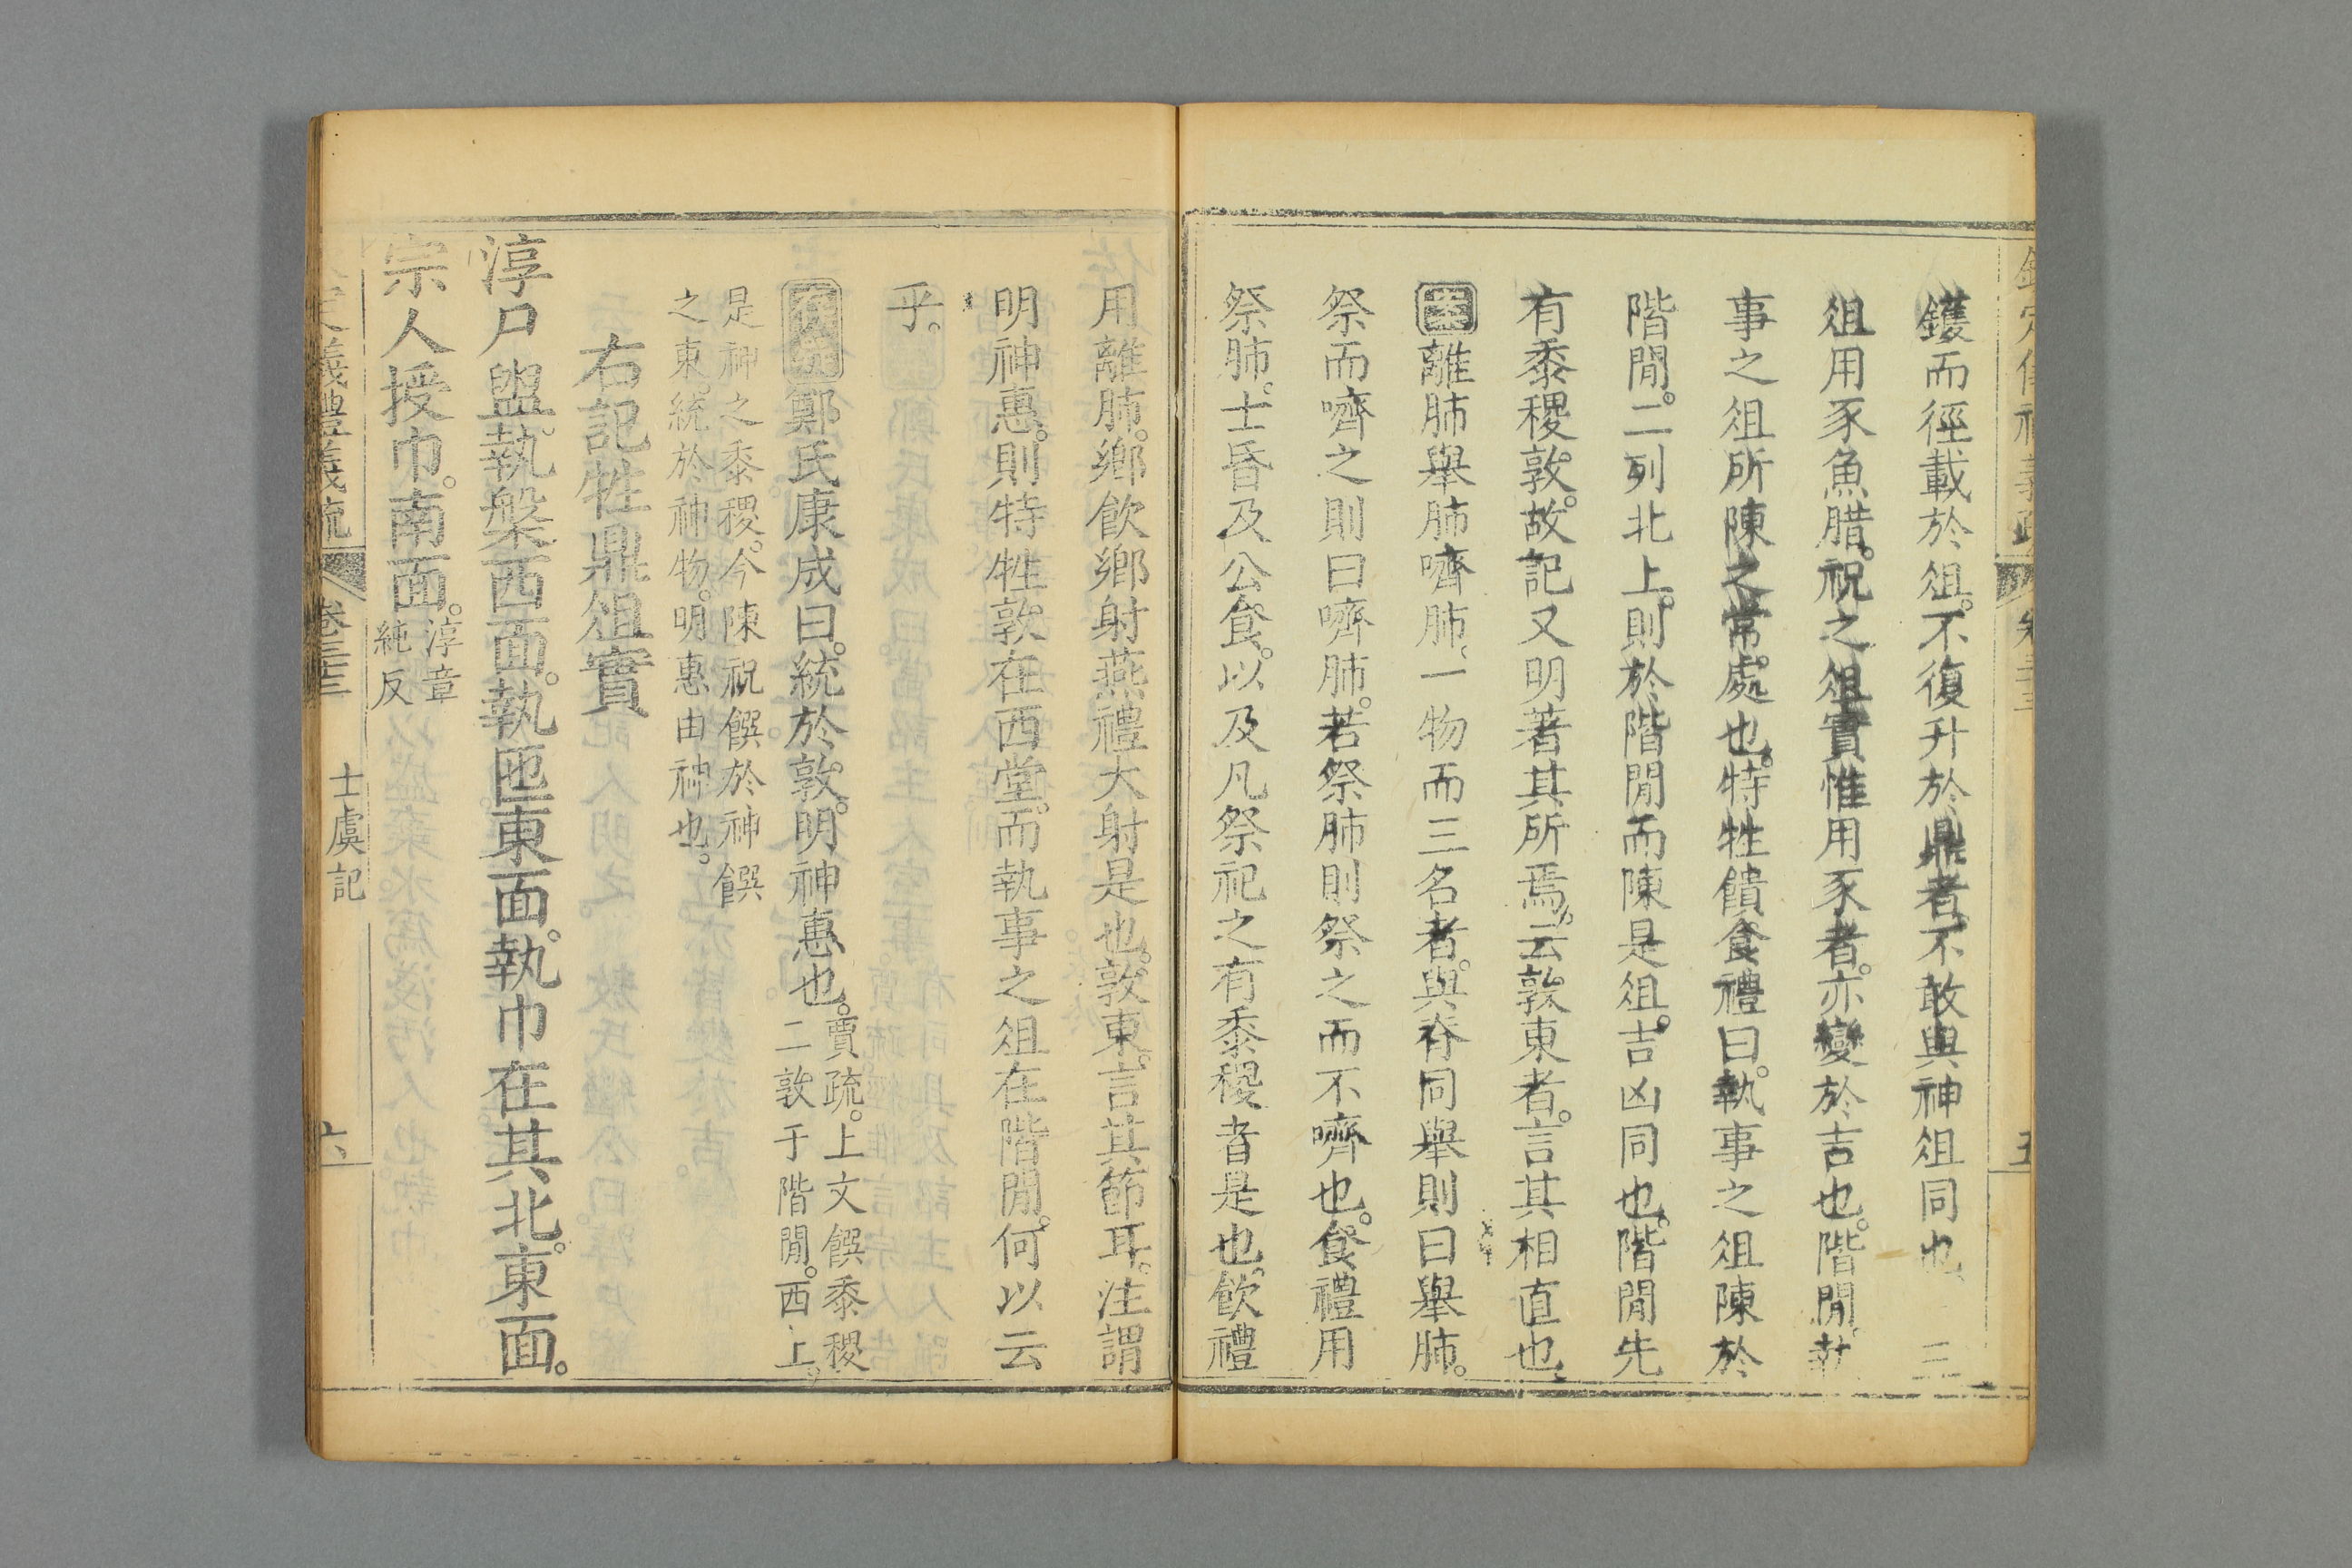 鑊而徑載於俎。不復升於鼎者。不敢與神俎同也。三
俎用豕魚腊。祝之俎實惟用豕者。亦變於吉也。階閒。執
事之俎所陳之常處也。特牲饋食禮曰。執事之俎陳於
階閒。二列北上。則於階閒而陳是俎。吉凶同也。階閒先
有黍稷敦。故記又明著其所焉。云敦東者。言其相直也。
案離肺舉肺嚌肺。一物而三名者。與脊同舉則曰舉肺。
祭而嚌之則曰嚌肺。若祭肺則祭之而不嚌也。食禮用
祭肺。士昏及公食。以及凡祭祀之有黍稷者是也。飲禮
用離肺。鄉飲鄉射燕禮大射是也。敦東。言其節耳。注謂
明神惠。則特牲敦在西堂。而執事之俎在階閒。何以云
乎。
鄭氏康成曰。統於敦。明神惠也。
賈疏。上文饌黍稷
二敦于階閒。西上。
是神之黍稷。今陳祝饌於神饌
之東。統於神物。明惠由神也。
右記牲鼎俎實
淳尸盥。執槃西面。執匜東面。執巾在其北。東面。
宗人授巾。南面。
淳章
純反
義禮義疏
卷三十三
士虞記
六